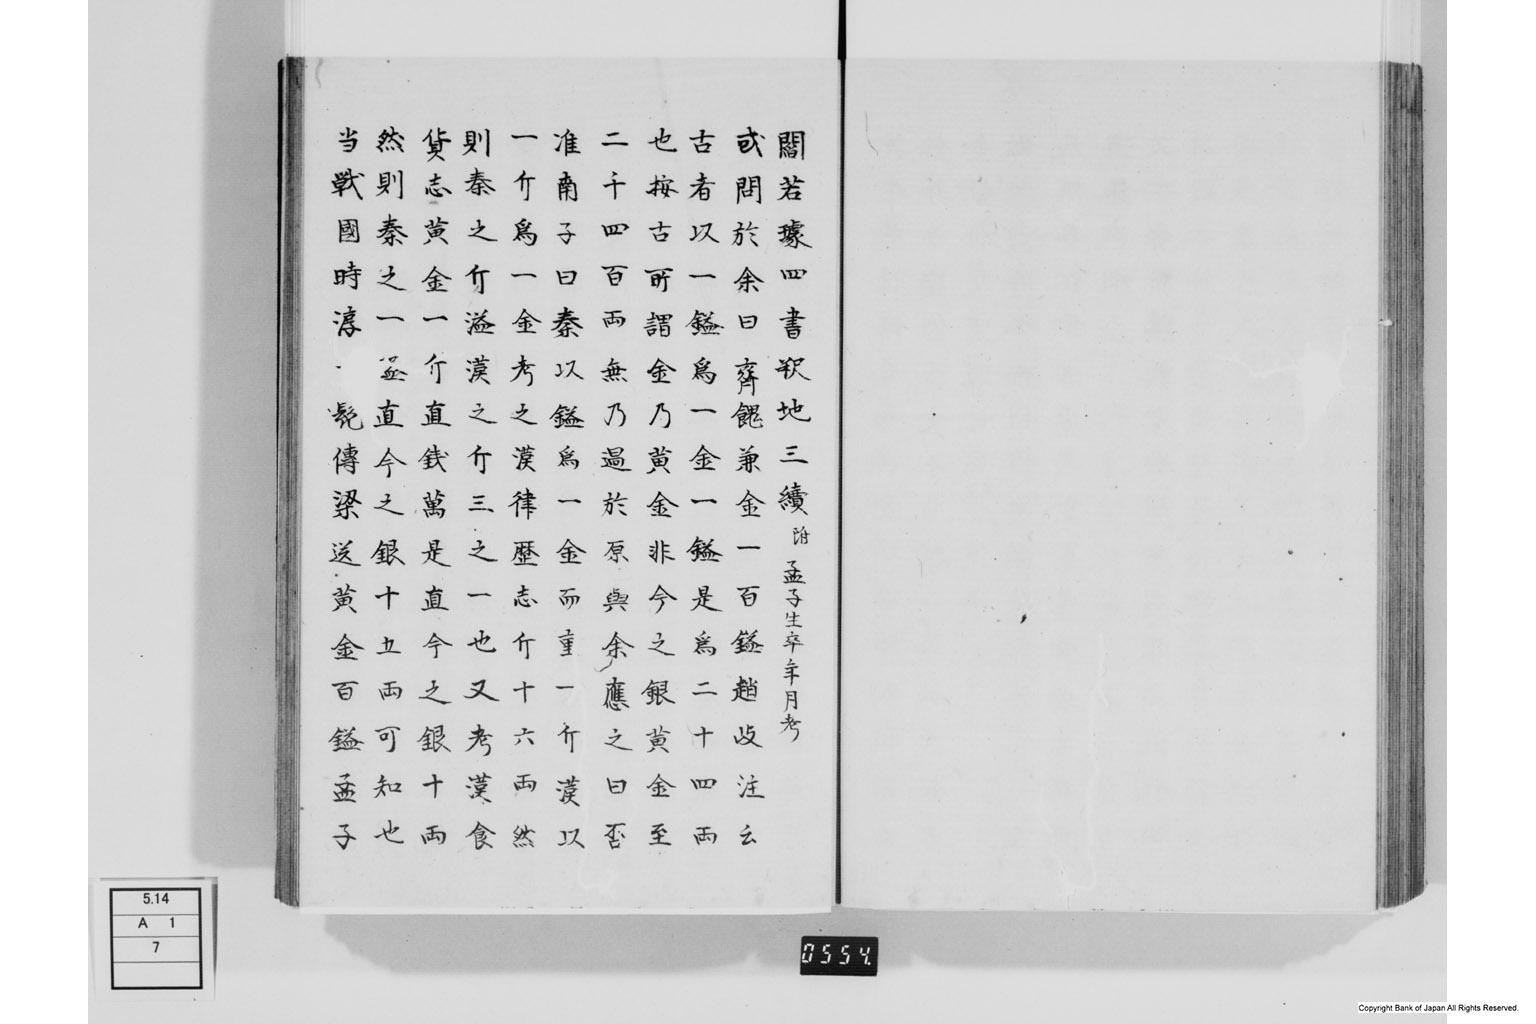 閻若璩四書釈地三續 附孟子生卒年月考
或問於余曰齊餽兼金一百鎰趙歧注云
古者以一鎰爲一金一鎰是爲二十四両
也按古所謂金乃黄金非今之銀黄金至
二千四百両無乃過於原與余應之曰否
准南子曰秦以鎰爲一金而重一斤漢以
一斤爲一金考之漢律歴志斤十六両然
則秦之斤溢漢之斤三之一也又考漢食
貨志黄金一斤直銭萬是直今之銀十両
然則秦之一 直今之銀十五両可知也
当戰國時淳 髠傳梁送黄金百鎰孟子
5.14
A 1
7
0554
Copyright Bank of Japan All Rights Reserved.